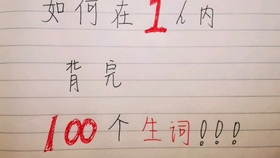 如何在1h内
背完
100个生词!!!